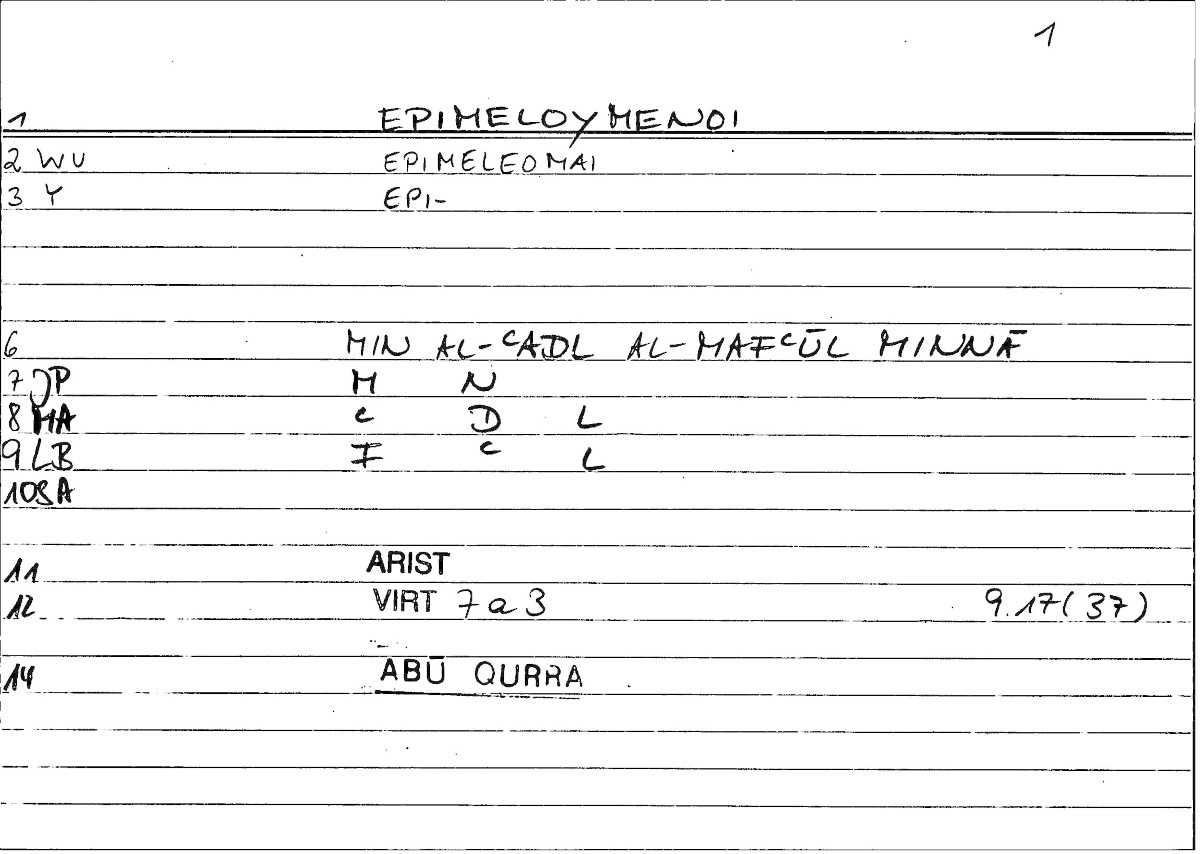 1
1 EPIMELOYMENOI
2 WU EPIMELEOMAI
3 Y EPI-
6 MIN AL-ᶜADL AL-MAFᶜŪL MINNĀ
7 JP M N
8 MA ᶜ D L
9 LB F ᶜ L
10 SA
11 ARIST
12 VIRT 7a3 9.17(37)
14 ABŪ QURRA